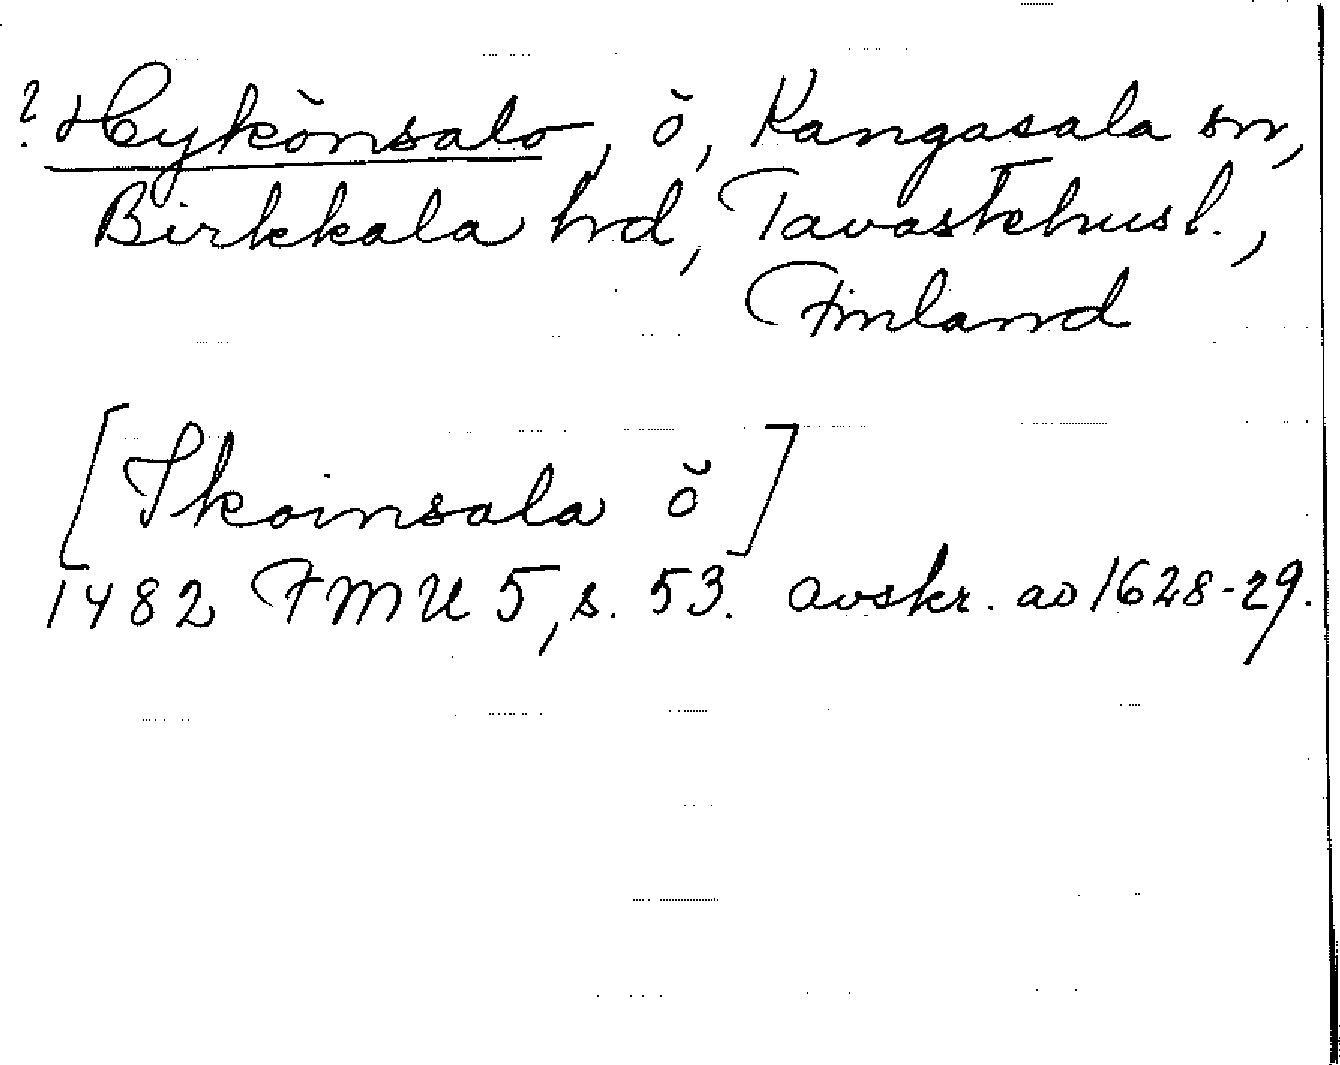 ? Hykönsalo, ö, Kangasala sn,
Birkkala hd, Tavastehus l.,
Finland
[Ikoinsala ö]
1482 FMU 5, s. 53. avskr. ao 1628-29.